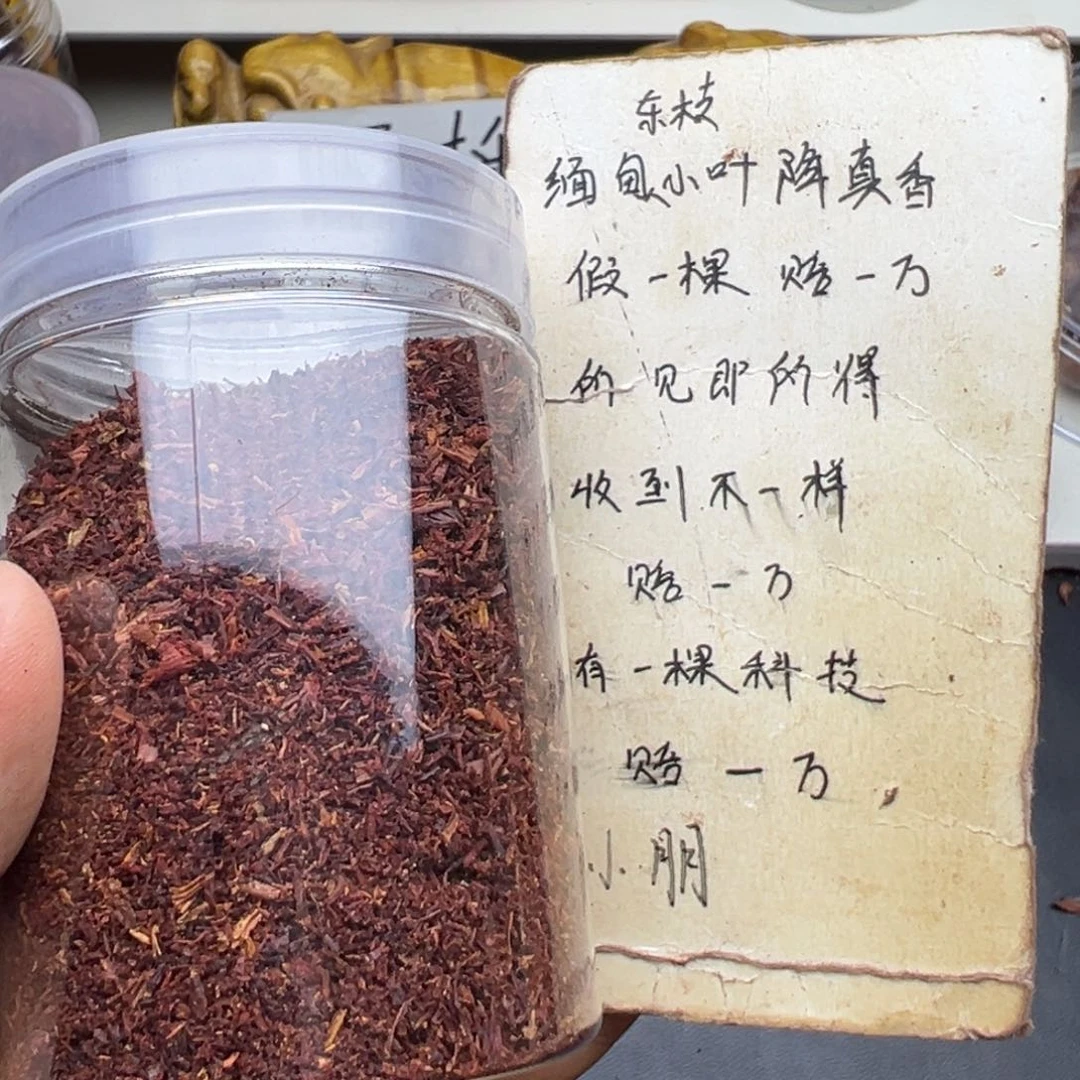 东枝
缅甸小叶降真香
假一棵 赔一万
的见即的得
收到不一样
赔一万
有一棵科技
赔一万
小朋